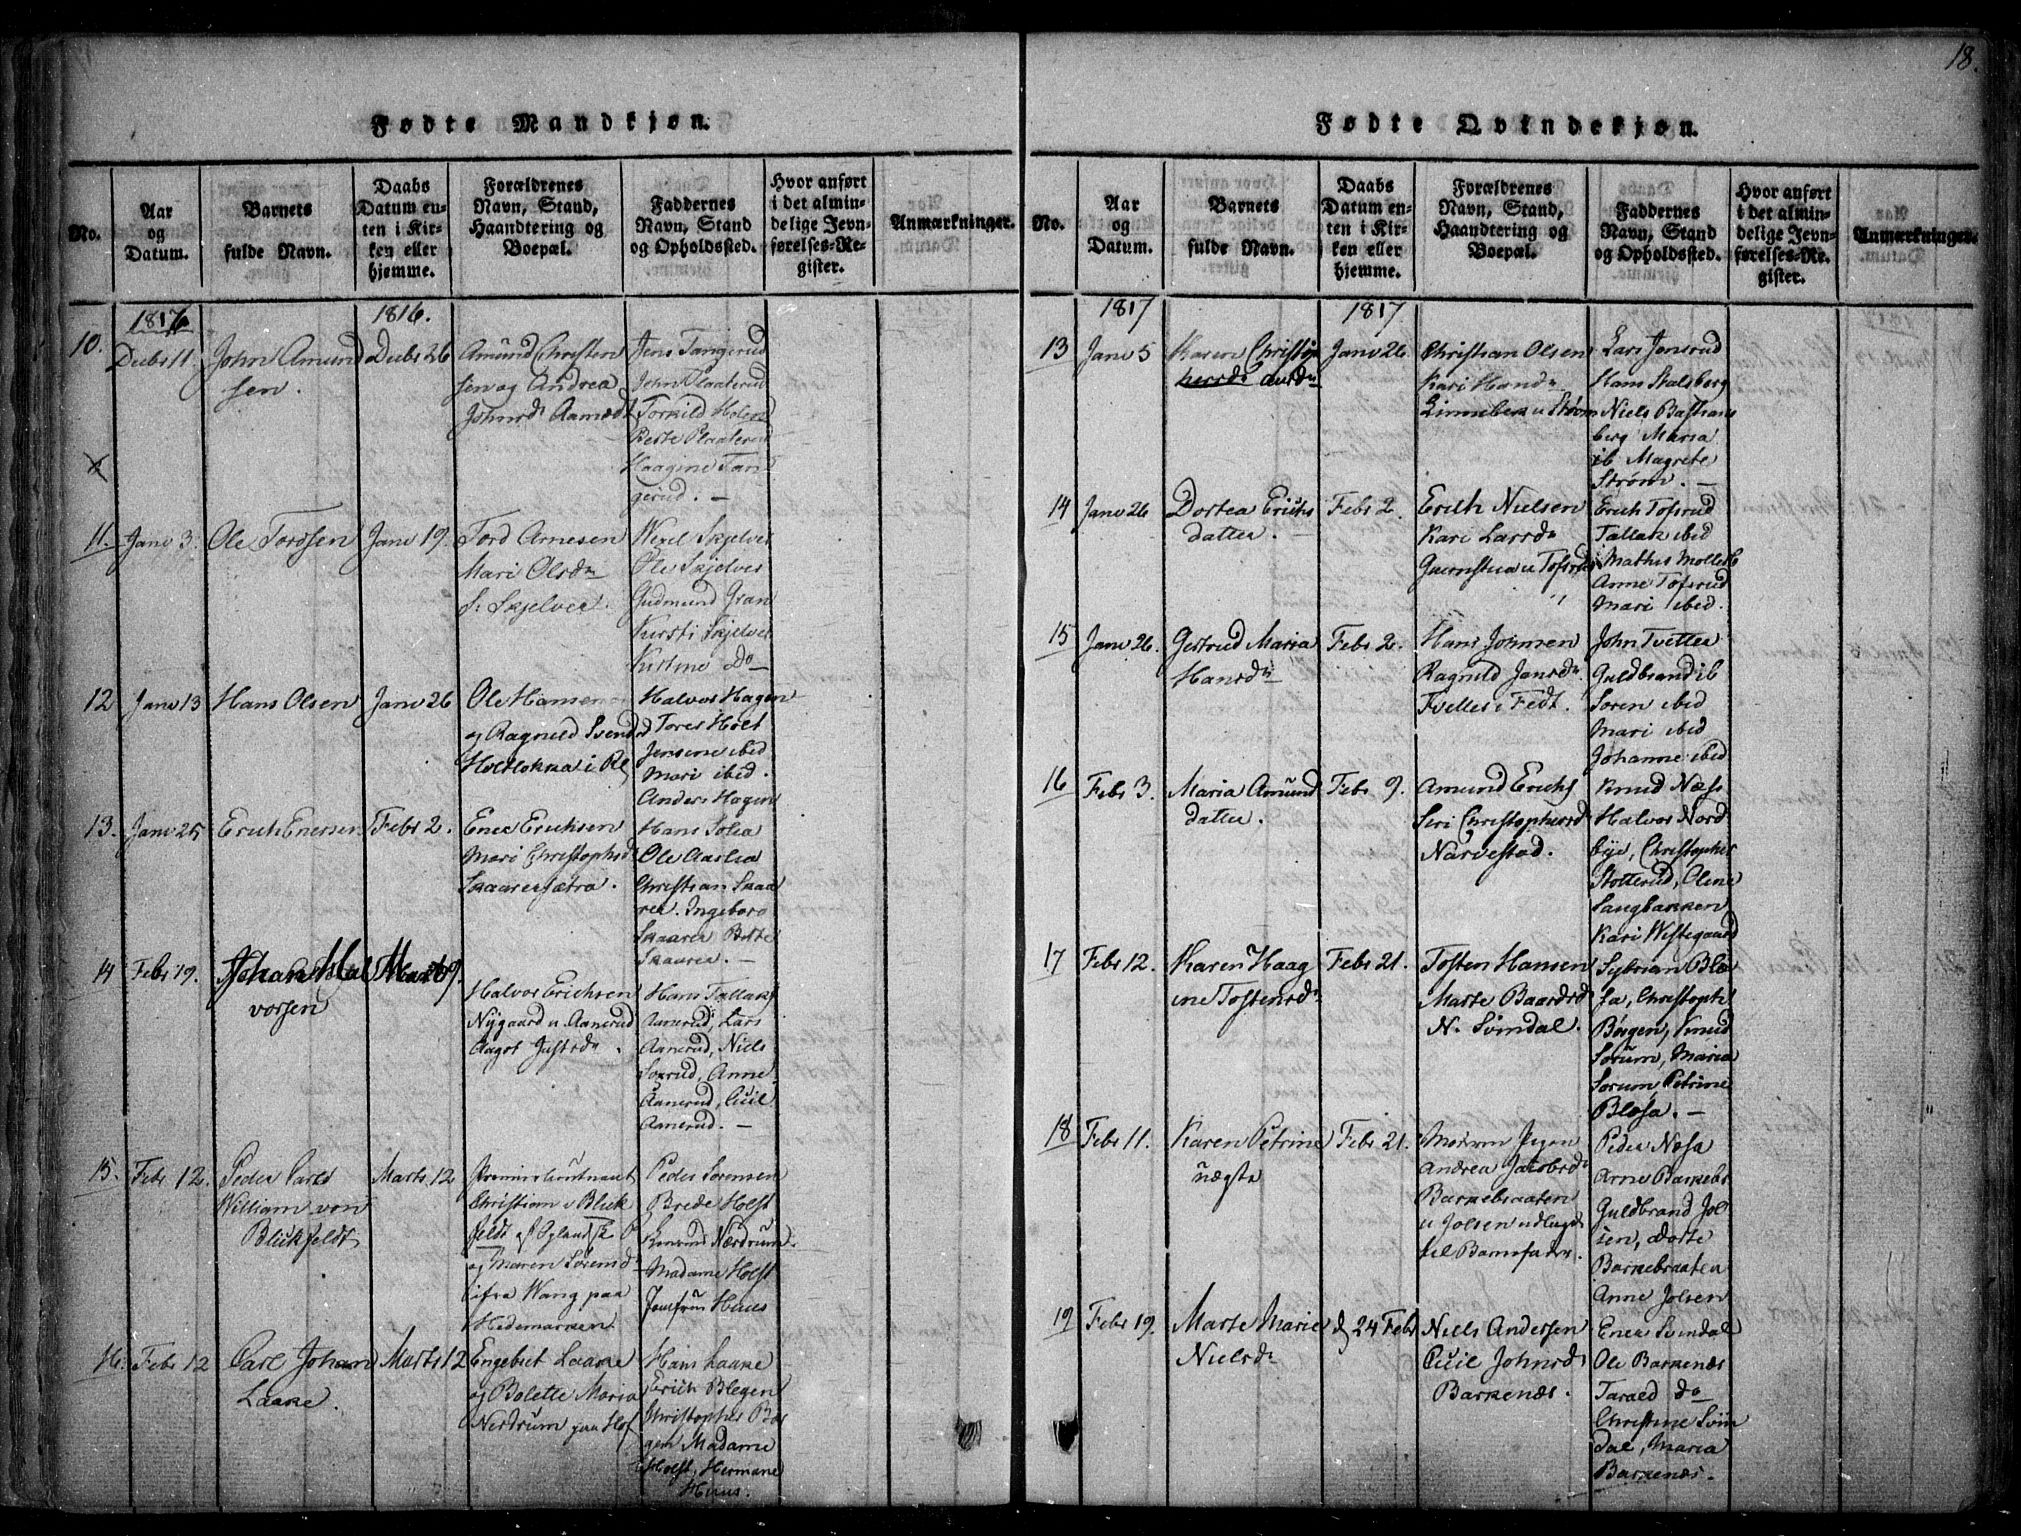 18.
Fødte Mandkjøn.
No.
Aar
og
Datum.
Barnets
fulde Navn.
Daabs
Datum en-
ten i Kir-
ken eller
hjemme.
Forældrenes
Navn, Stand,
Haandtering og
Boepæl.
Faddernes
Navn, Stand
og Opholdssted.
Hvor anført
i det almin-
delige Jevn-
førelses-Re-
gister.
Anmærkninger.
1816
1816.
10.
Decbr 11.
John Amund
sen.
Decbr 26
Amund Christen
sen og Andrea
Johnsdr Aamodt
Jens Tangerud
John Plaaterud
Torkild Holen
Berte Plaaterud
Haagine Tan
gerud. —
11.
Janv 3.
Ole Tordsen
Janv 19.
Tord Arnesen
Mari Olsdr
S. Skjelver.
Wexel Skjelver
Ole Skjelver
Gudmund Gran
Kirsti Skjelver
Kirstine Do
12
Janv 13
Hans Olsen
Janv 26
Ole Hansen
og Ragnild Svend
Holtlokka i
Halvor Hagen
Tores Holt
Jensine ibid
Mari ibid.
Anders Hagen
13.
Janv 25
Erich Enersen
Febr 2.
Ener Erichsen
Mari Christophsd
Skaaresætra.
Hans Solia
Ole Aaslia
Christian Skaa
rer. Ingeborg
Skaarer Berte
Skaarer. —
14
Febr 19.
Johan Hal
vorsen
Marts 9.
Halvor Erichsen
Nygaard u. Aanerud
Aagot Justsdr.
Hans Tallaks
Aanerud, Lars
Aanerud, Niels
Soxrud, Anne
Aanerud, Cicil
Aanerud. —
15.
Febr 12.
Peder Carl
William von
Blickfeldt
Marts 12
Premierlieutnant
Christian v Blick
feldt
og Maren Sorensdr
ifra Wang paa
Hedemarken.
Peder Sorensen
Brede Holst
Amund Nærdrum.
Madame Holst
Jomfru Huus
16.
Febr 12
Carl Johan
Laake.
Marts 12
Engebret Laake
og Bolette Maria
Nerdrum paa Hof
Hans Laake
Erich Blegen
Christopher Bør
gen Madame
Holst, Hermane
Huus.
Fødte Qvindekjøn.
No.
Aar
og
Datum.
Barnets
fulde Navn.
Daabs
Datum en-
ten i Kir-
ken eller
hjemme.
Forældrenes
Navn, Stand,
Haandtering og
Boepæl.
Faddernes
Navn, Stand
og Opholdssted.
Hvor anført
i det almin-
delige Jevn-
førelses-Re-
gister.
Anmærkninger.
1817
1817
13
Janv 5
Karen Christop
hersdr ansdr
Janv 26
Christian Olsen
Kari Hansdr
Linnebek u Strøm
Lars Jonsrud
Hans Stalsberg
Niels Bastians
berg Maria
ib Magrete
Strøm. —
14
Janv 26
Dortea Erichs
datter. —
Febr 2.
Erich Nielsen
Kari Larsdr
u Tofsrud
Erich Tofsrud
Tallak ibid
Mathis Mollerb
Anne Tofsrud
Mari ibid.
15
Janv 26.
Gertrud Maria
Hansdr
Febr 2.
Hans Johnsen
Ragnild Jansdr
Tvetter i Fedt.
John Tvetter
Guldbrand ib
Soren ibid
Mari ibid
Johanne ibid
16
Febr 3.
Maria Amund
datter.
Febr 9.
Amund Erichs
Siri Christophersd
Narvestad.
Knud Næss
Halvor Nord
bye, Christopher
Stotterud, Oline
Langbakken
Kari Westegaard
17
Febr 12.
Karen Haag
ine Tostensdr
Febr 21.
Tosten Hansen
Marte Baardsd
N. Svindal.
Sybrian Blø
sa, Christopher
Børgen, Knud
Sorum, Maria
Sorum Petrine
Bløsa. —
18
Febr 11.
Karen Petrine
uægte
Febr 21.
Andrea Jacobsdr
Barkebraaten
u Jolsen udlagde
til Barnefader.
Peder Næsa
Arne Barkebr
Guldbrand Jol
sen, Dorte
Barkebraaten
Anne Jolsen
19
Febr 19.
Marte Marie
Nielsdr
d 24 Febr
Niels Andersen
Cicil Johnsd
Barkenæs.
Ener Svindal
Ole Barkenæs
Tarald do
Christine Svin
dal, Maria
Barkenæs.